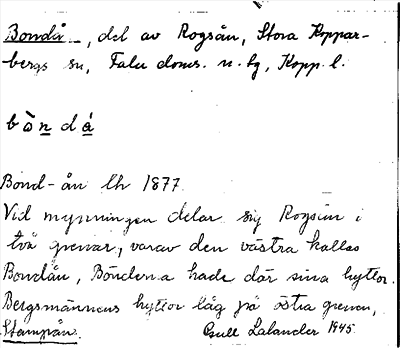 Bondå_, del av Rogsån, Stora Koppar-
bergs sn, Falu doms. n. tg, Kopp. l.
bò̱ṉdá̱
Bond-ån lh 1877
Vid mynningen delar sig Rogsån i
två grenar, varav den västra kallas
Bondån, Bönderna hade där sina hyttor.
Bergsmännens hyttor låg på östra grenen,
Stampån.
Gull Lalander 1945.